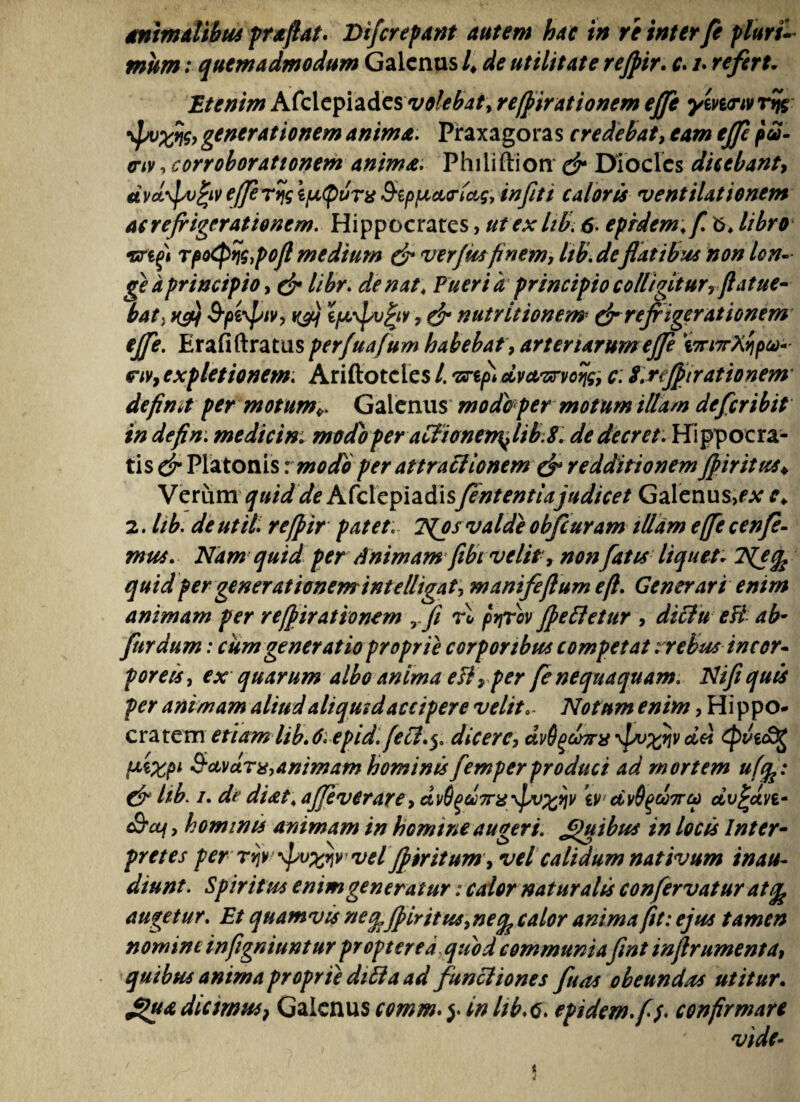 animalibus præſtat. Diſcrepant autem hac in re inter ſe pluri-
mùm: quemadmodum Galenus l. de utilitate reſpir. c. 1. refert.
Etenim Aſclepiades volebat, reſpirationem eſſe γένεσιν τῆς
ψυχῆς, generationem animæ. Praxagoras credebat, eam eſſe ῥῶ-
σιν, corroborationem animæ. Philiſtion & Diocles dicebant,
ἀνάψυξιν eſſe τῆς ἐμφύτȣ θερμασίας, inſiti caloris ventilationem
ac refrigerationem. Hippocrates, ut ex lib. 6. epidem. ſ. 6. libro
περὶ τροφῆς, poſt medium & verſus finem, lib. de flatibus non lon-
gè à principio, & libr. de nat. Pueri à principio colligitur, ſtatue-
bat, καὶ θρέψιν, καὶ ἔμψυξιν, & nutritionem & refrigerationem
eſſe. Eraſiſtratus perſuaſum habebat, arteriarum eſſe ἐπιπλήρω-
σιν, expletionem. Ariſtoteles l. περὶ ἀναπνοῆς, c. 8. reſpirationem
definit per motum. Galenus modò per motum illam deſcribit
in defin. medicin. modò per actionem, lib. 8. de decret. Hippocra-
tis & Platonis: modò per attractionem & redditionem ſpiritus.
Verùm quid de Aſclepiadis ſententia judicet Galenus, ex c.
2. lib. de util. reſpir patet. Nos valdè obſcuram illam eſſe cenſe-
mus. Nam quid per Animam ſibi velit, non ſatis liquet. Neq;
quid per generationem intelligat, manifeſtum eſt. Generari enim
animam per reſpirationem, ſi τὸ ῥητὸν ſpectetur, dictu eſt ab-
ſurdum: cùm generatio propriè corporibus competat: rebus incor-
poreis, ex quarum albo anima eſt, per ſe nequaquam. Niſi quis
per animam aliud aliquid accipere velit. Notum enim, Hippo-
cratem etiam lib. 6. epid. ſect. 5. dicere, ἀνθρώπȣ ψυχὴν ἀεὶ φύεσθ
μέχρι θανάτȣ, animam hominis ſemper produci ad mortem uſq;:
& lib. 1. de diæt. aſſeverare, ἀνθρώπȣ ψυχὴν ἐν ἀνθρώπῳ ἀυξάνε-
σθαι, hominis animam in homine augeri. Quibus in locis Inter-
pretes per τὴν ψυχὴν vel ſpiritum, vel calidum nativum inau-
diunt. Spiritus enim generatur: calor naturalis conſervatur atq;
augetur. Et quamvis neq; ſpiritus, neq; calor anima ſit: ejus tamen
nomine inſigniuntur propterea quòd communia ſint inſtrumenta,
quibus anima propriè dicta ad functiones ſuas obeundas utitur.
Quæ dicimus, Galenus comm. 5. in lib. 6. epidem. ſ. 5. confirmare
vide-